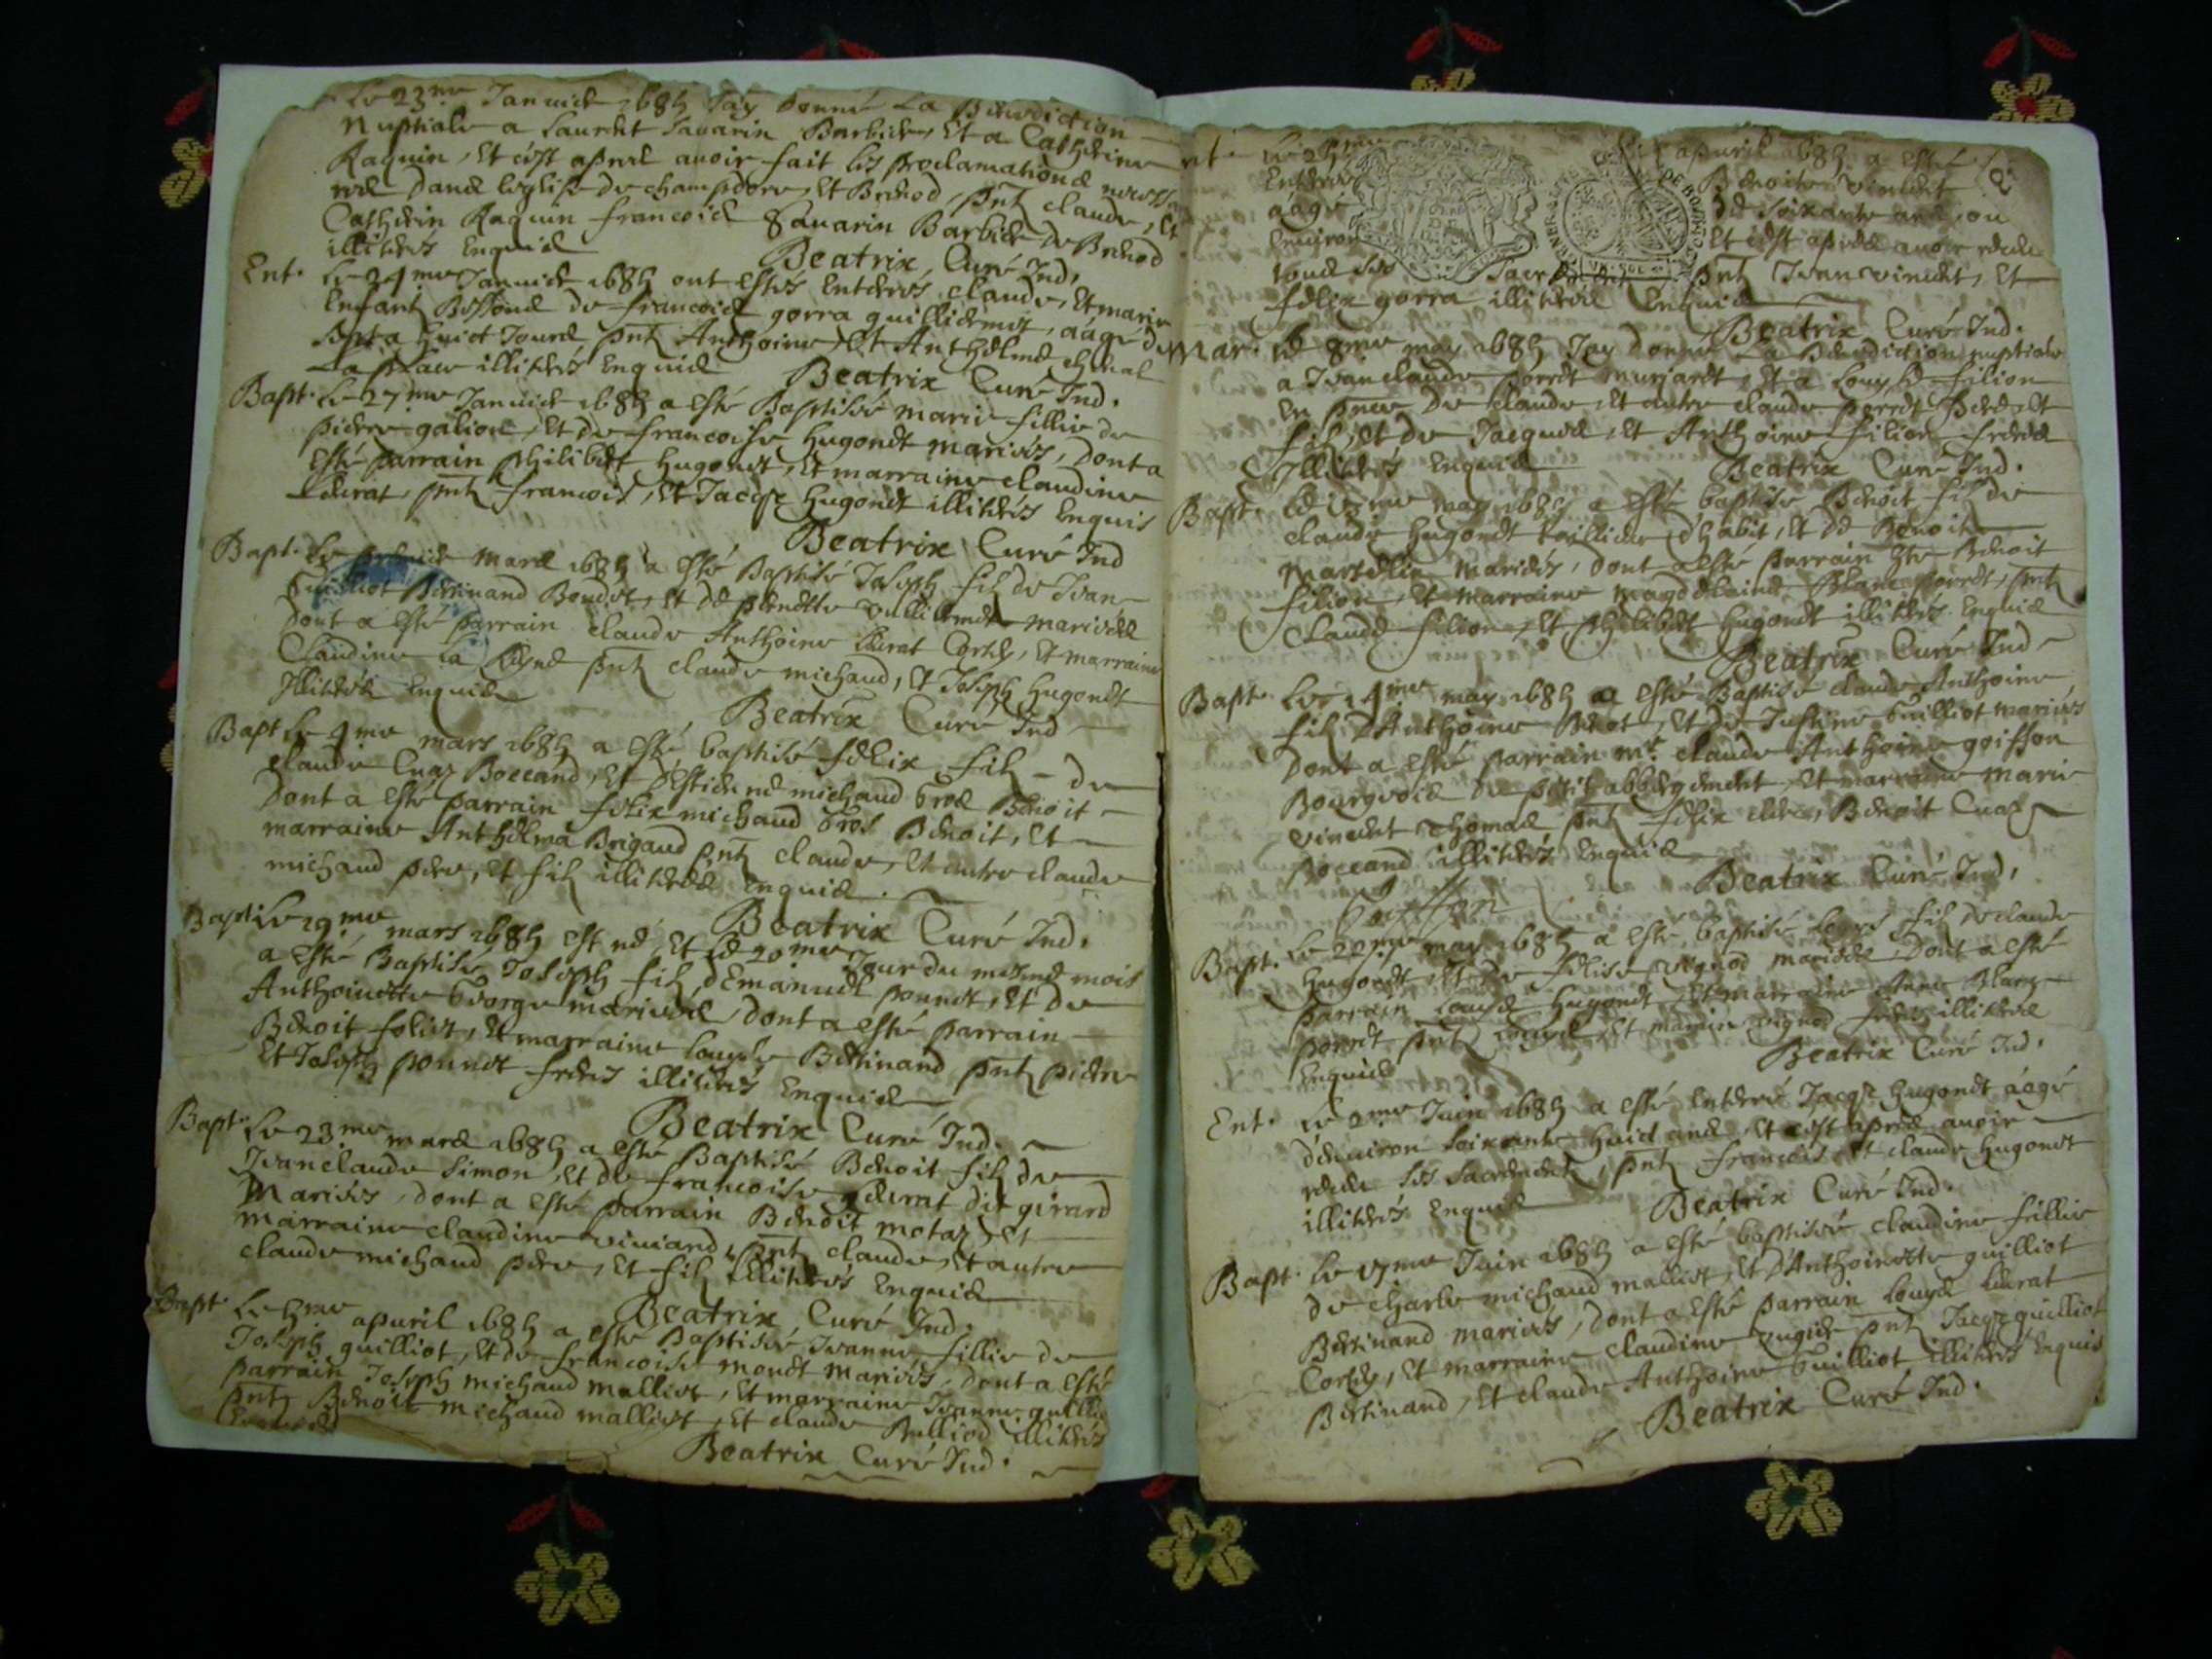 Le 23me Januier 1685 Jay donné La Benediction
Nuptiale a Laurent Sauarin Barbier, Et a Catherine
Raquin, Et c'est apres auoir fait les proclamations
dans leglise de champdore, Et Brenod, pnts claude, Et
Catherin Raquin francois Sauarin Barbier de Brenod
illiteres Enquis
Beatrix Curé Ind.
Ent. Le 24me Januier 1685 ont estés Enterrés claude, Et marie
Enfant Bessons de francois gorra guilliermet, aages de
Sept a huict Jours pnts Anthoine, Et Anthelme
La place illiterés Enquis
Beatrix Curé Ind.
Bapt. Le 27me Januier 1685 a esté Baptisée marie fillie de
pierre galion, Et de francoise hugonet mariés, dont a
esté parrain philibert hugonet, Et marraine claudine
pnts francois, Et Jacq hugonet illiterés Enquis
Beatrix Curé Ind
Bapt. Le mars 1685 a esté Baptisé Joseph fils de Jean
Guilliot Bertinand Bondet, Et de pernette Vulliermet mariés
dont a esté parrain claude Anthoine Corcely, Et marraine
Claudine La pnts claude michaud, Et Joseph hugonet
Illiterés Enquis
Beatrix Curé Ind
Bapt Le 4me mars 1685 a esté baptisé felix fils de
claude Boccand, Et d'Estienne michaud Gros Benoit
Dont a esté parrain felix michaud Gros Benoit, Et
marraine Anthelma Brigand pnts claude, Et autre claude
michaud pere, Et fils illiterés Enquis.
Beatrix Curé Ind.
Bapt. Le 19me mars 1685 est né, Et le 20me Jour du mesme mois
a esté Baptisé Joseph fils d'Emanuel poncet, Et de
Anthoinette George mariés, dont a esté parrain
Benoit foliet, Et marraine Louyse Bertinand pnts pierre
Et Joseph poncet freres illiterés Enquis
Beatrix Curé Ind.
Bapt. Le 23me mars 1685 a esté Baptisé Benoit fils de
Jean claude Simon, Et de francoise dit girard
Mariés, dont a esté parrain Benoit motaz, Et
marraine claudine viuiand, pnts claude, Et autre
claude michaud pere, Et fils illiterés Enquis
Beatrix Curé Ind.
Bapt. Le 5me apuril 1685 a esté Baptisée Jeanne fillie de
Joseph guilliot, Et de francoise monet mariés, dont a esté
parrain Joseph michaud malliet, Et marraine Jeanne
pnts Benoit michaud malliet, Et claude illiterés
Enquis
Beatrix Curé Ind.
Le apuril 1685 a esté
Enterrée Benoite vincent
aagée de soixante ans, ou
Enuiron Et c'est apres auoir receu
tous ses Sacr pnts Jean vincent, Et
felix gorra illiterés Enquis
Beatrix Curé Ind.
Mar. Le 8me may 1685 Jay donné La Benediction nuptiale
a Jean claude perret murjaret, Et a Louyse filion
En pnce De claude, Et autre claude perret pere, Et
fils, Et de Jacques, Et Anthoine filion freres
Illiterés Enquis
Beatrix Curé Ind.
Bapt. Le 13me may 1685 a esté baptisé Benoit fils de
claude hugonet taillieur d'habit, Et de Benoite
Martelin mariés, dont a esté parrain hte Benoit
filion, Et marraine magdelaine Blanc perret, pnts
Claude filion, Et philibert hugonet illiterés Enquis
Beatrix Curé Ind
Bapt. Le 14me may 1685 a esté Baptisé claude Anthoine
fils D'Anthoine Et de Justine Guilliot mariés
Dont a esté parrain mr. claude Anthoine goiffon
Bourgeois de petit abbergement, Et marraine marie
vincent thomas pnts felix Benoit
Boccand illiterés Enquis
Beatrix Curé Ind,
Goyffon
Bapt. Le 22me may 1685 a esté baptisé fils de claude
Hugonet, Et de felise mariés, Dont a esté
parrain Louys Hugonet, Et marraine Anne Blanc
perret pnts Et freres illiterés
Enquis
Beatrix Curé Ind.
Ent. Le 2me Juin 1685 a esté Enterré Jacq Hugonet aagé
d'enuiron soixante huict ans, Et c'est apres auoir
receu ses Sacrements, pnts francois, Et claude hugonet
illiterés Enquis
Beatrix Curé Ind.
Bapt. Le 17me Juin 1685 a esté baptisée claudine fillie
de charle michaud malliet, Et D'Anthoinette guilliot
Bertinand mariés, dont a esté parrain Louys
Corcely, Et marraine claudine pnts Jacq guilliot
Bertinand, Et claude Anthoine Guilliot illiterés Enquis
Beatrix Curé Ind.